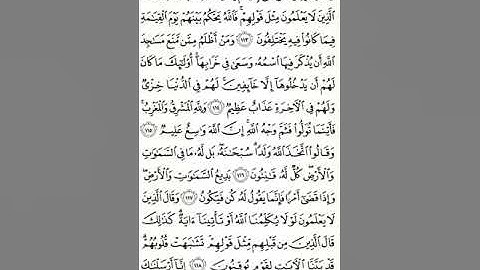 ٱلَّذِينَ لَا يَعْلَمُونَ مِثْلَ قَوْلِهِمْ ۚ فَٱللَّهُ يَحْكُمُ بَيْنَهُمْ يَوْمَ ٱلْقِيَـٰمَةِ
فِيمَا كَانُوا۟ فِيهِ يَخْتَلِفُونَ ١١٣ وَمَنْ أَظْلَمُ مِمَّن مَّنَعَ مَسَـٰجِدَ
ٱللَّهِ أَن يُذْكَرَ فِيهَا ٱسْمُهُۥ وَسَعَىٰ فِى خَرَابِهَآ ۚ أُو۟لَـٰٓئِكَ مَا كَانَ
لَهُمْ أَن يَدْخُلُوهَآ إِلَّا خَآئِفِينَ ۚ لَهُمْ فِى ٱلدُّنْيَا خِزْىٌ
وَلَهُمْ فِى ٱلْـَٔاخِرَةِ عَذَابٌ عَظِيمٌ ١١٤ وَلِلَّهِ ٱلْمَشْرِقُ وَٱلْمَغْرِبُ ۚ
فَأَيْنَمَا تُوَلُّوا۟ فَثَمَّ وَجْهُ ٱللَّهِ ۚ إِنَّ ٱللَّهَ وَٰسِعٌ عَلِيمٌ ١١٥
وَقَالُوا۟ ٱتَّخَذَ ٱللَّهُ وَلَدًا ۗ سُبْحَـٰنَهُۥ ۖ بَل لَّهُۥ مَا فِى ٱلسَّمَـٰوَٰتِ
وَٱلْأَرْضِ ۖ كُلٌّ لَّهُۥ قَـٰنِتُونَ ١١٦ بَدِيعُ ٱلسَّمَـٰوَٰتِ وَٱلْأَرْضِ ۖ
وَإِذَا قَضَىٰٓ أَمْرًا فَإِنَّمَا يَقُولُ لَهُۥ كُن فَيَكُونُ ١١٧ وَقَالَ ٱلَّذِينَ
لَا يَعْلَمُونَ لَوْلَا يُكَلِّمُنَا ٱللَّهُ أَوْ تَأْتِينَآ ءَايَةٌ ۗ كَذَٰلِكَ
قَالَ ٱلَّذِينَ مِن قَبْلِهِم مِّثْلَ قَوْلِهِمْ ۘ تَشَـٰبَهَتْ قُلُوبُهُمْ ۗ
قَدْ بَيَّنَّا ٱلْـَٔايَـٰتِ لِقَوْمٍ يُوقِنُونَ ١١٨ إِنَّآ أَرْسَلْنَـٰكَ